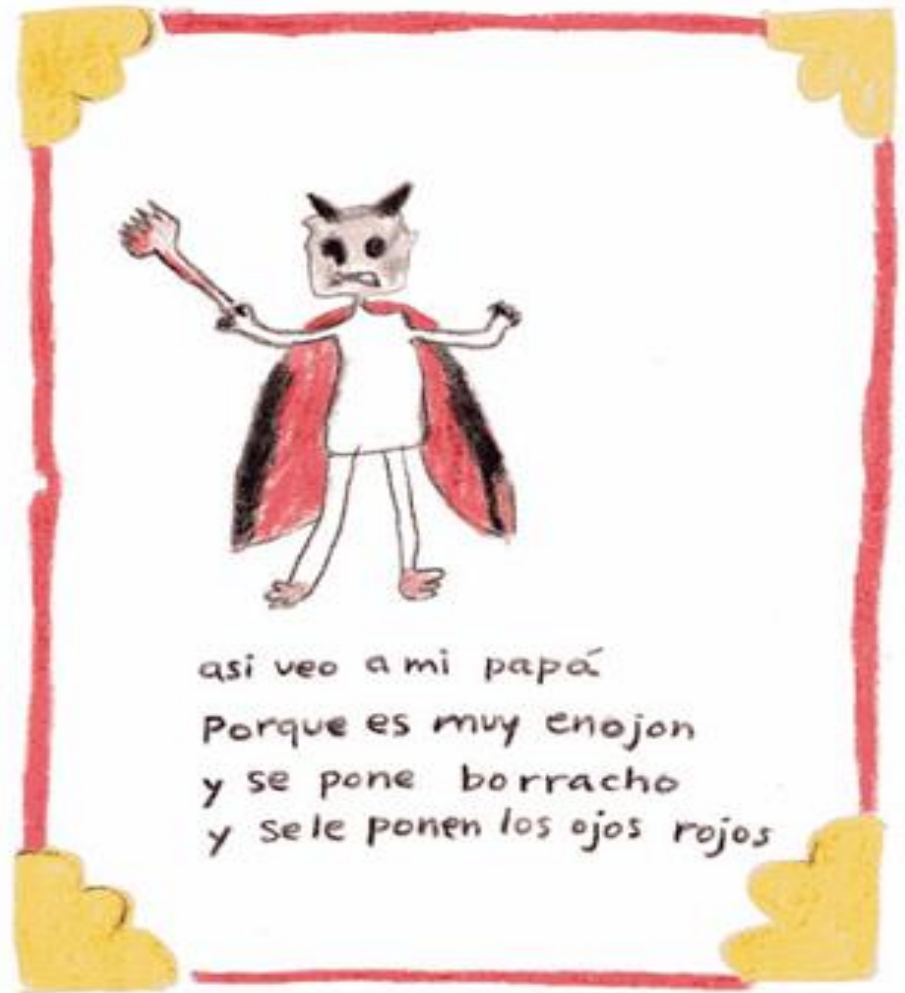 asi veo a mi papá
Porque es muy enojon
y se pone borracho
y se le ponen los ojos rojos